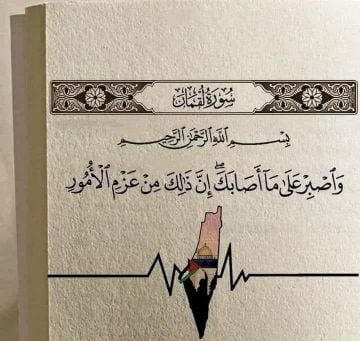 سُورَةُ لُقْمَانَ
بِسْمِ اللَّهِ الرَّحْمَٰنِ الرَّحِيمِ
وَٱصْبِرْ عَلَىٰ مَآ أَصَابَكَ ۖ إِنَّ ذَٰلِكَ مِنْ عَزْمِ ٱلْأُمُورِ